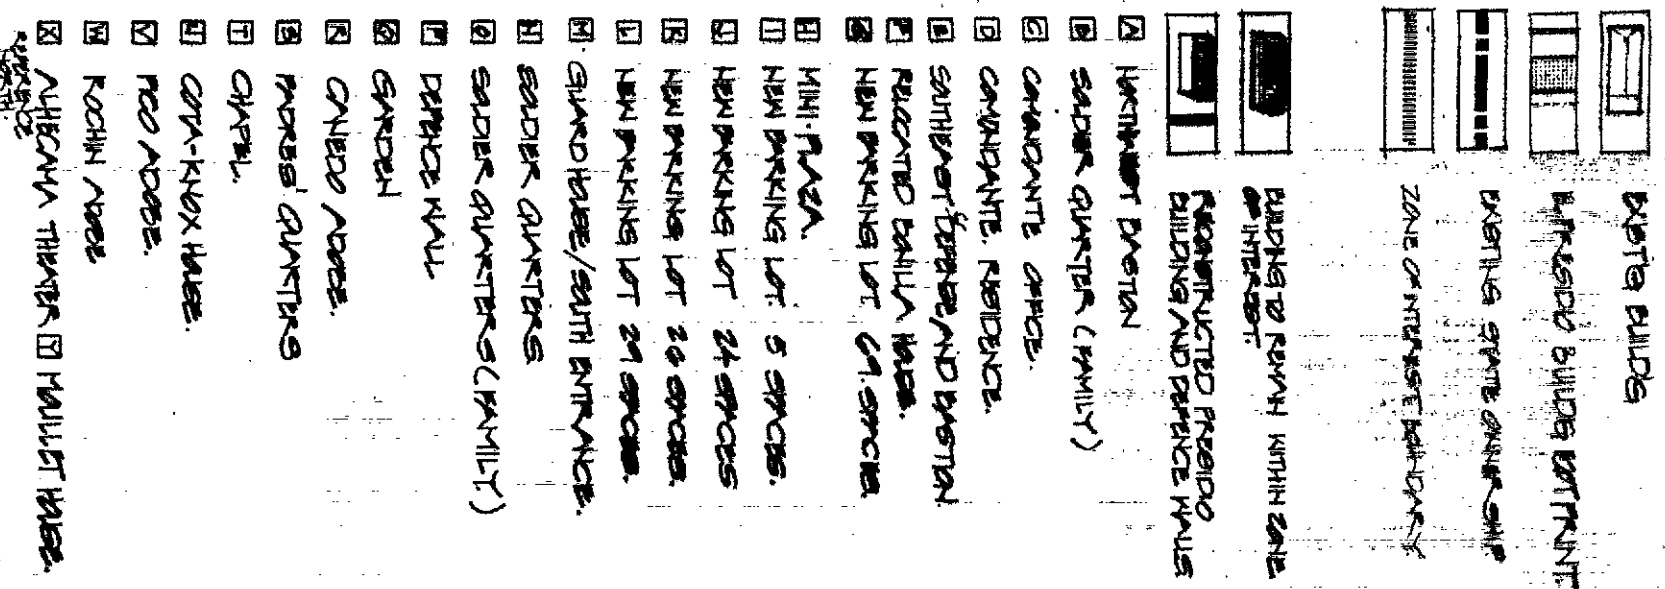 EXIST'G BUILD'S
PRESIDIO BUILD'S FOOTPRINT.
EXISTING STATE OWNER-SHIP
ZONE OF INTEREST BOUNDARY
BUILDINGS TO REMAIN WITHIN ZONE
OF INTEREST.
RECONSTRUCTED PRESIDIO
BUILDING AND DEFENCE WALLS
A NORTHWEST BASTION
B SOLDIER QUARTER (FAMILY)
C COMANDANTE OFFICE.
D COMANDANTE. RESIDENCE.
E SOUTHEAST DEFENSE/AND BASTION.
F RELOCATED BONILLA HOUSE.
G NEW PARKING LOT. 69. SPACES.
H MINI-PLAZA.
I NEW PARKING LOT. 5 SPACES.
J NEW PARKING LOT 24 SPACES
K NEW PARKING LOT 26 SPACES.
L NEW PARKING LOT 29 SPACES.
M GUARD HOUSE/SOUTH ENTRANCE.
N SOLDIER QUARTERS
O SOLDIER QUARTERS (FAMILY)
P DEFENCE WALL
Q GARDEN
R CANEDO ADOBE.
S PADRES' QUARTERS
T CHAPEL.
U COTA-KNOX HOUSE.
V PICO ADOBE.
W ROCHIN ADOBE
X ALHECAMA THEATER Y MOULLET HOUSE.
REFERENCE